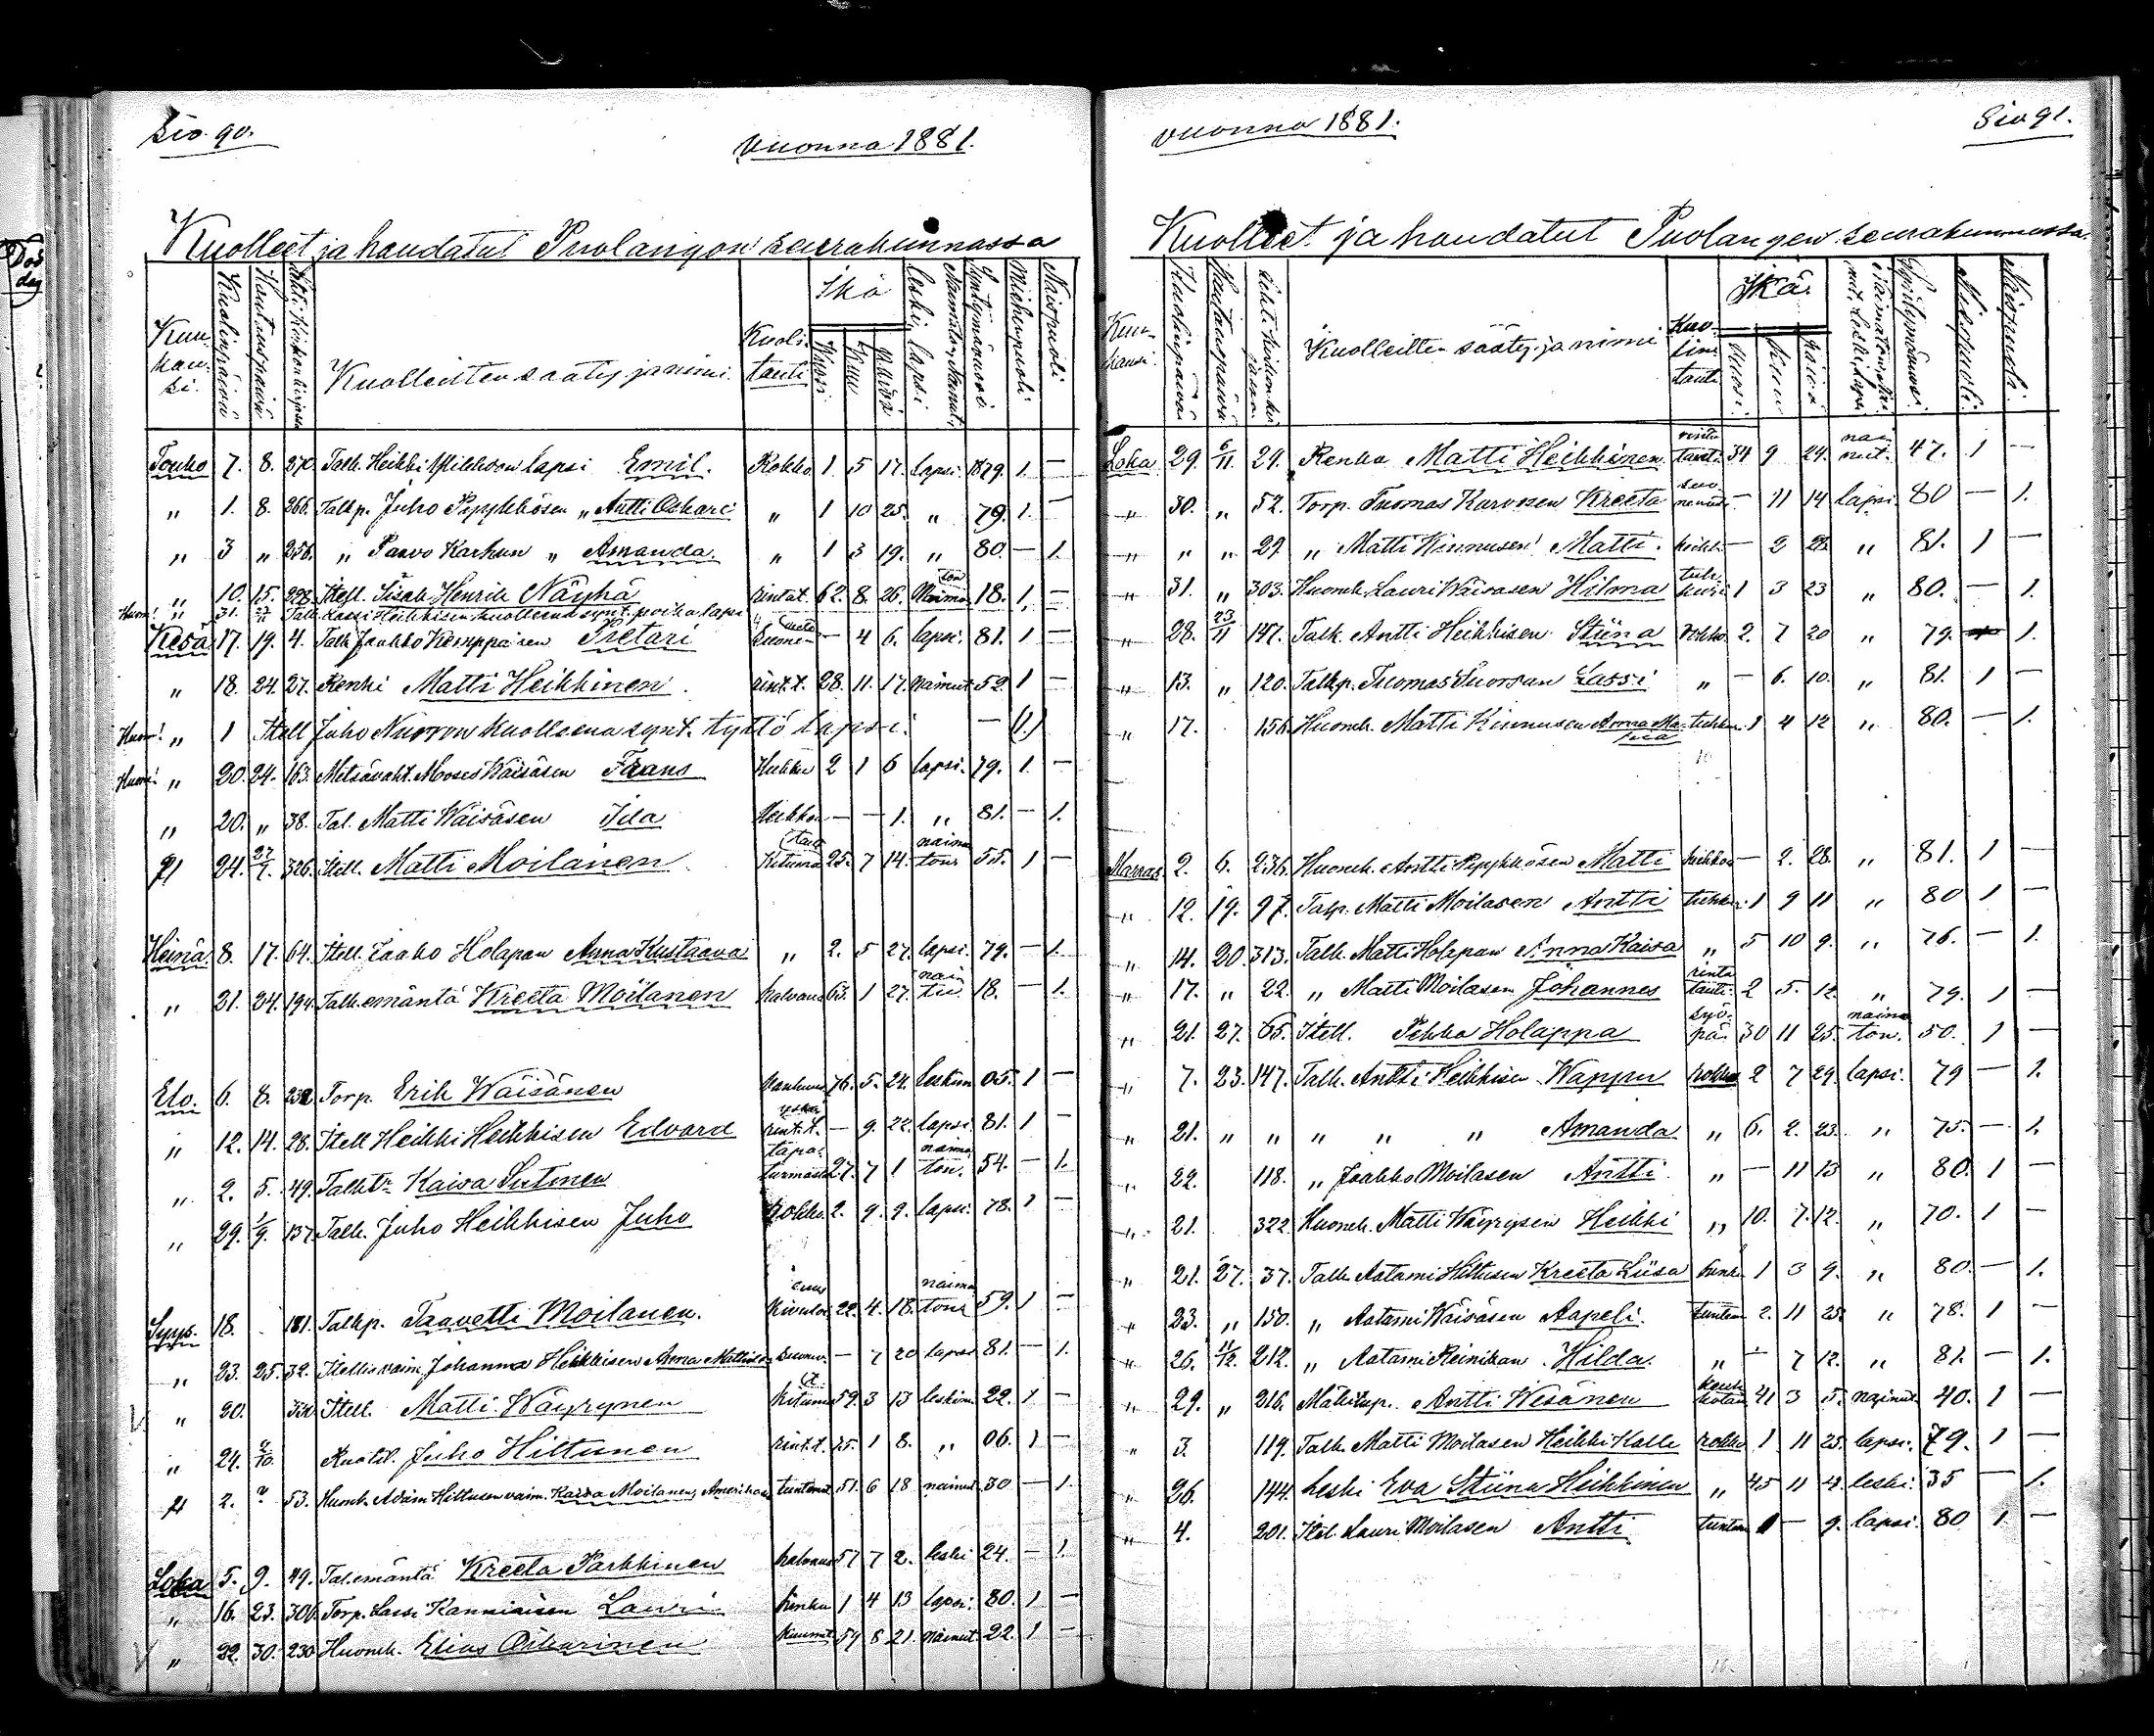 Siv. 90.
Vuonna 1881.
Kuolleet ja haudatut Puolangon seurakunnassa
Kuukausi. Kuolinpäivä Hautauspäivä Kuolleitten sääty ja nimi. Kuolitauti Ikä Vuosi Kuu Päivä Leski, lapsi Syntymävuosi Miehenpuoli Naispuoli
Touko 7. 8. 270 Talk. Heikki Mikkosen lapsi Emil. Rokko 1 5 17. lapsi. 1879. 1. —
„ 1. 8. 266. Talkp. Juho Pyykkösen „ Antti Oskari „ 1 10 25. „ 79. 1. —
„ 3 „ 256. „ Paavo Karhun „ Amanda. „ 1 3 19. „ 80. — 1.
„ 10. 15. 228. Itell. Iisak Henrik Näyhä rintat. 62. 8. 26. Naimaton 18. 1. —
Huom! „ 31. Talk. Lassi Heikkisen kuolleena synt. poika lapsi
Kesä 17. 19. 4. Talk. Jaakko Kemppaisen Pietari — 4 6. lapsi. 81. 1 —
„ 18. 24. 27. Renki Matti Heikkinen. rint.t. 28. 11. 17. Nainut 52. 1 —
Huom! „ 1 Itell Juho Nuoron kuolleena synt. tyttö lapsi. — (1.)
Huom! „ 20. 24. 163. Metsävaht. Moses Wäisäsen Frans Heikko 2 1 6 lapsi. 79. 1. —
„ 20. „ 38. Tal. Matti Wäisäsen Ida Heikko — — 1. „ 81. — 1.
„ 24. 27/7. 326. Itell. Matti Moilanen Kituma 25. 7 14. naimaton 55. 1 —
Heinä 8. 17. 64. Itell. Jaako Holapan Anna Kustaava „ 2. 5 27. lapsi. 79. — 1.
„ 21. 24. 194. Talk. emäntä Kreeta Moilanen halvaus 63. 1 27. 18. — 1.
Elo. 6. 8. 232 Torp. Erik Wäisänen Vanhuus 76. 5. 24. leskim 05. 1 —
„ 12. 14. 28. Itell Heikki Heikkisen Edvard rint.t. — 9. 22. lapsi. 81. 1 —
„ 2. 5. 49. Talktr Kaisa Sutinen tapaturmasta 27. 7 1 naimaton. 54. — 1.
„ 29. 1/9. 137. Talk. Juho Heikkisen Juho Rokko. 2. 9. 9. lapsi. 78. 1 —
Syys. 18. 181. Talkp. Taavetti Moilanen. 22. 4. 18. naimaton 59. 1 —
„ 23. 25. 32. Itellis vaim. Johanna Heikkisen Anna Mathilda — 7 20 lapsi 81. — 1.
„ 20. Itell. Matti Wäyrynen Kituma 59. 3 13 leskim. 22. 1 —
„ 24. 2/10. Ruotil. Juho Hiltunen rint.t. 75. 1 8. „ 06. 1 —
„ 2. ? 53. Huonek. Adam Hiltusen vaim. Kaisa Moilanen, Amerikas tuntemat. 51. 6 18 nainut 30 — 1.
Loka 5. 9. 49. Tal. emäntä Kreeta Parkkinen halvaus 57 7 2. leski 24. — 1.
„ 16. 23. 306 Torp. Lassi Kanniaisen Lauri hinku 1 4 13 lapsi. 80. 1 —
„ 22. 30. 230 Huonek. Elias Oikarinen kuumet 59 8 21. nainut. 22. 1 —
Siv 91.
vuonna 1881.
Kuolleet ja haudatut Puolangen seurakunnassa.
Kuukausi. Kuolinpäivä Hautauspäivä Kuolleitten sääty ja nimi Kuolintauti Ikä. Vuosi. Kuu Päiviä Syntymävuosi. Miespuoli. Naispuoli.
Loka 29. 6/11. 29. Renkä Matti Heikkinen rintataut. 34 9 29. nainut. 47. 1 —
„ 30. „ 52. Torp. Tuomas Karvosen Kreeta — 11 14 lapsi. 80 — 1.
„ „ „ 29. „ Matti Kinnusen Matti. heikk. — 2 28. „ 81. 1 —
„ 31. „ 303. Huonek. Lauri Wäisäsen Hilma tuhkuri 1 3 23 „ 80. — 1.
„ 28. 23/11 147. Talk. Antti Heikkisen Stiina Rokko. 2. 7 20 „ 79. 1.
„ 13. „ 120. Talkp. Tuomas Suorsan Lassi „ — 6. 10. „ 81. 1 —
„ 17. 156. Huonek. Matti Kinnusen Anna Ma- tuhkur. 1 4 12 „ 80. — 1.
Marras. 2. 6. 236. Huonek. Antti Pyykkösen Matti heikkou — 2. 28. „ 81. 1 —
„ 12. 19. 97. Talp. Matti Moilasen Antti tuhkur. 1 9 11 „ 80 1 —
„ 14. 20. 313. Talk. Matti Holapan Anna Kaisa „ 5 10 9. „ 76. — 1.
„ 17. „ 22. „ Matti Moilasen Johannes rintatauti. 2 5. 12. „ 79. 1 —
„ 21. 27. 65. Itell. Pekka Holappa syöpä. 30 11 25. naimaton. 50. 1 —
„ 7. 23. 147. Talk. Antti Heikkisen Wappu rokko 2 7 29. lapsi. 79 — 1.
„ 21. „ „ „ „ „ Amanda. „ 6. 2. 23. „ 75. — 1.
„ 22. 118. „ Jaakko Moilasen Antti. „ — 11 13 „ 80. 1 —
„ 21. 322. Huonek. Matti Wäyrysen Heikki „ 10. 7. 12. „ 70. 1 —
„ 21. 27. 37. Talk. Aatami Hiltusen Kreeta Liisa hinku 1 3 9. „ 80. — 1.
„ 23. „ 150. „ Aatami Wäisäsen Aapeli. tuntem 2. 11 25. „ 78. 1 —
„ 26. 11/12. 212. „ Aatami Reinikan Hilda. „ — 7 12. „ 81. — 1.
„ 29. „ 216. Mäkitup. Antti Wesänen keuhkotau 41 3 5. nainut. 40. 1 —
„ 3. 119. Talk. Matti Moilasen Heikki Kalle rokko 1 11 25. lapsi. 79. 1 —
„ 26. 144. Leski Eva Stiina Heikkinen „ 45 11 4. leski. 35 — 1.
„ 4. 201. Itel. Lauri Moilasen Antti tuntem 1 — 9. lapsi. 80 1. —